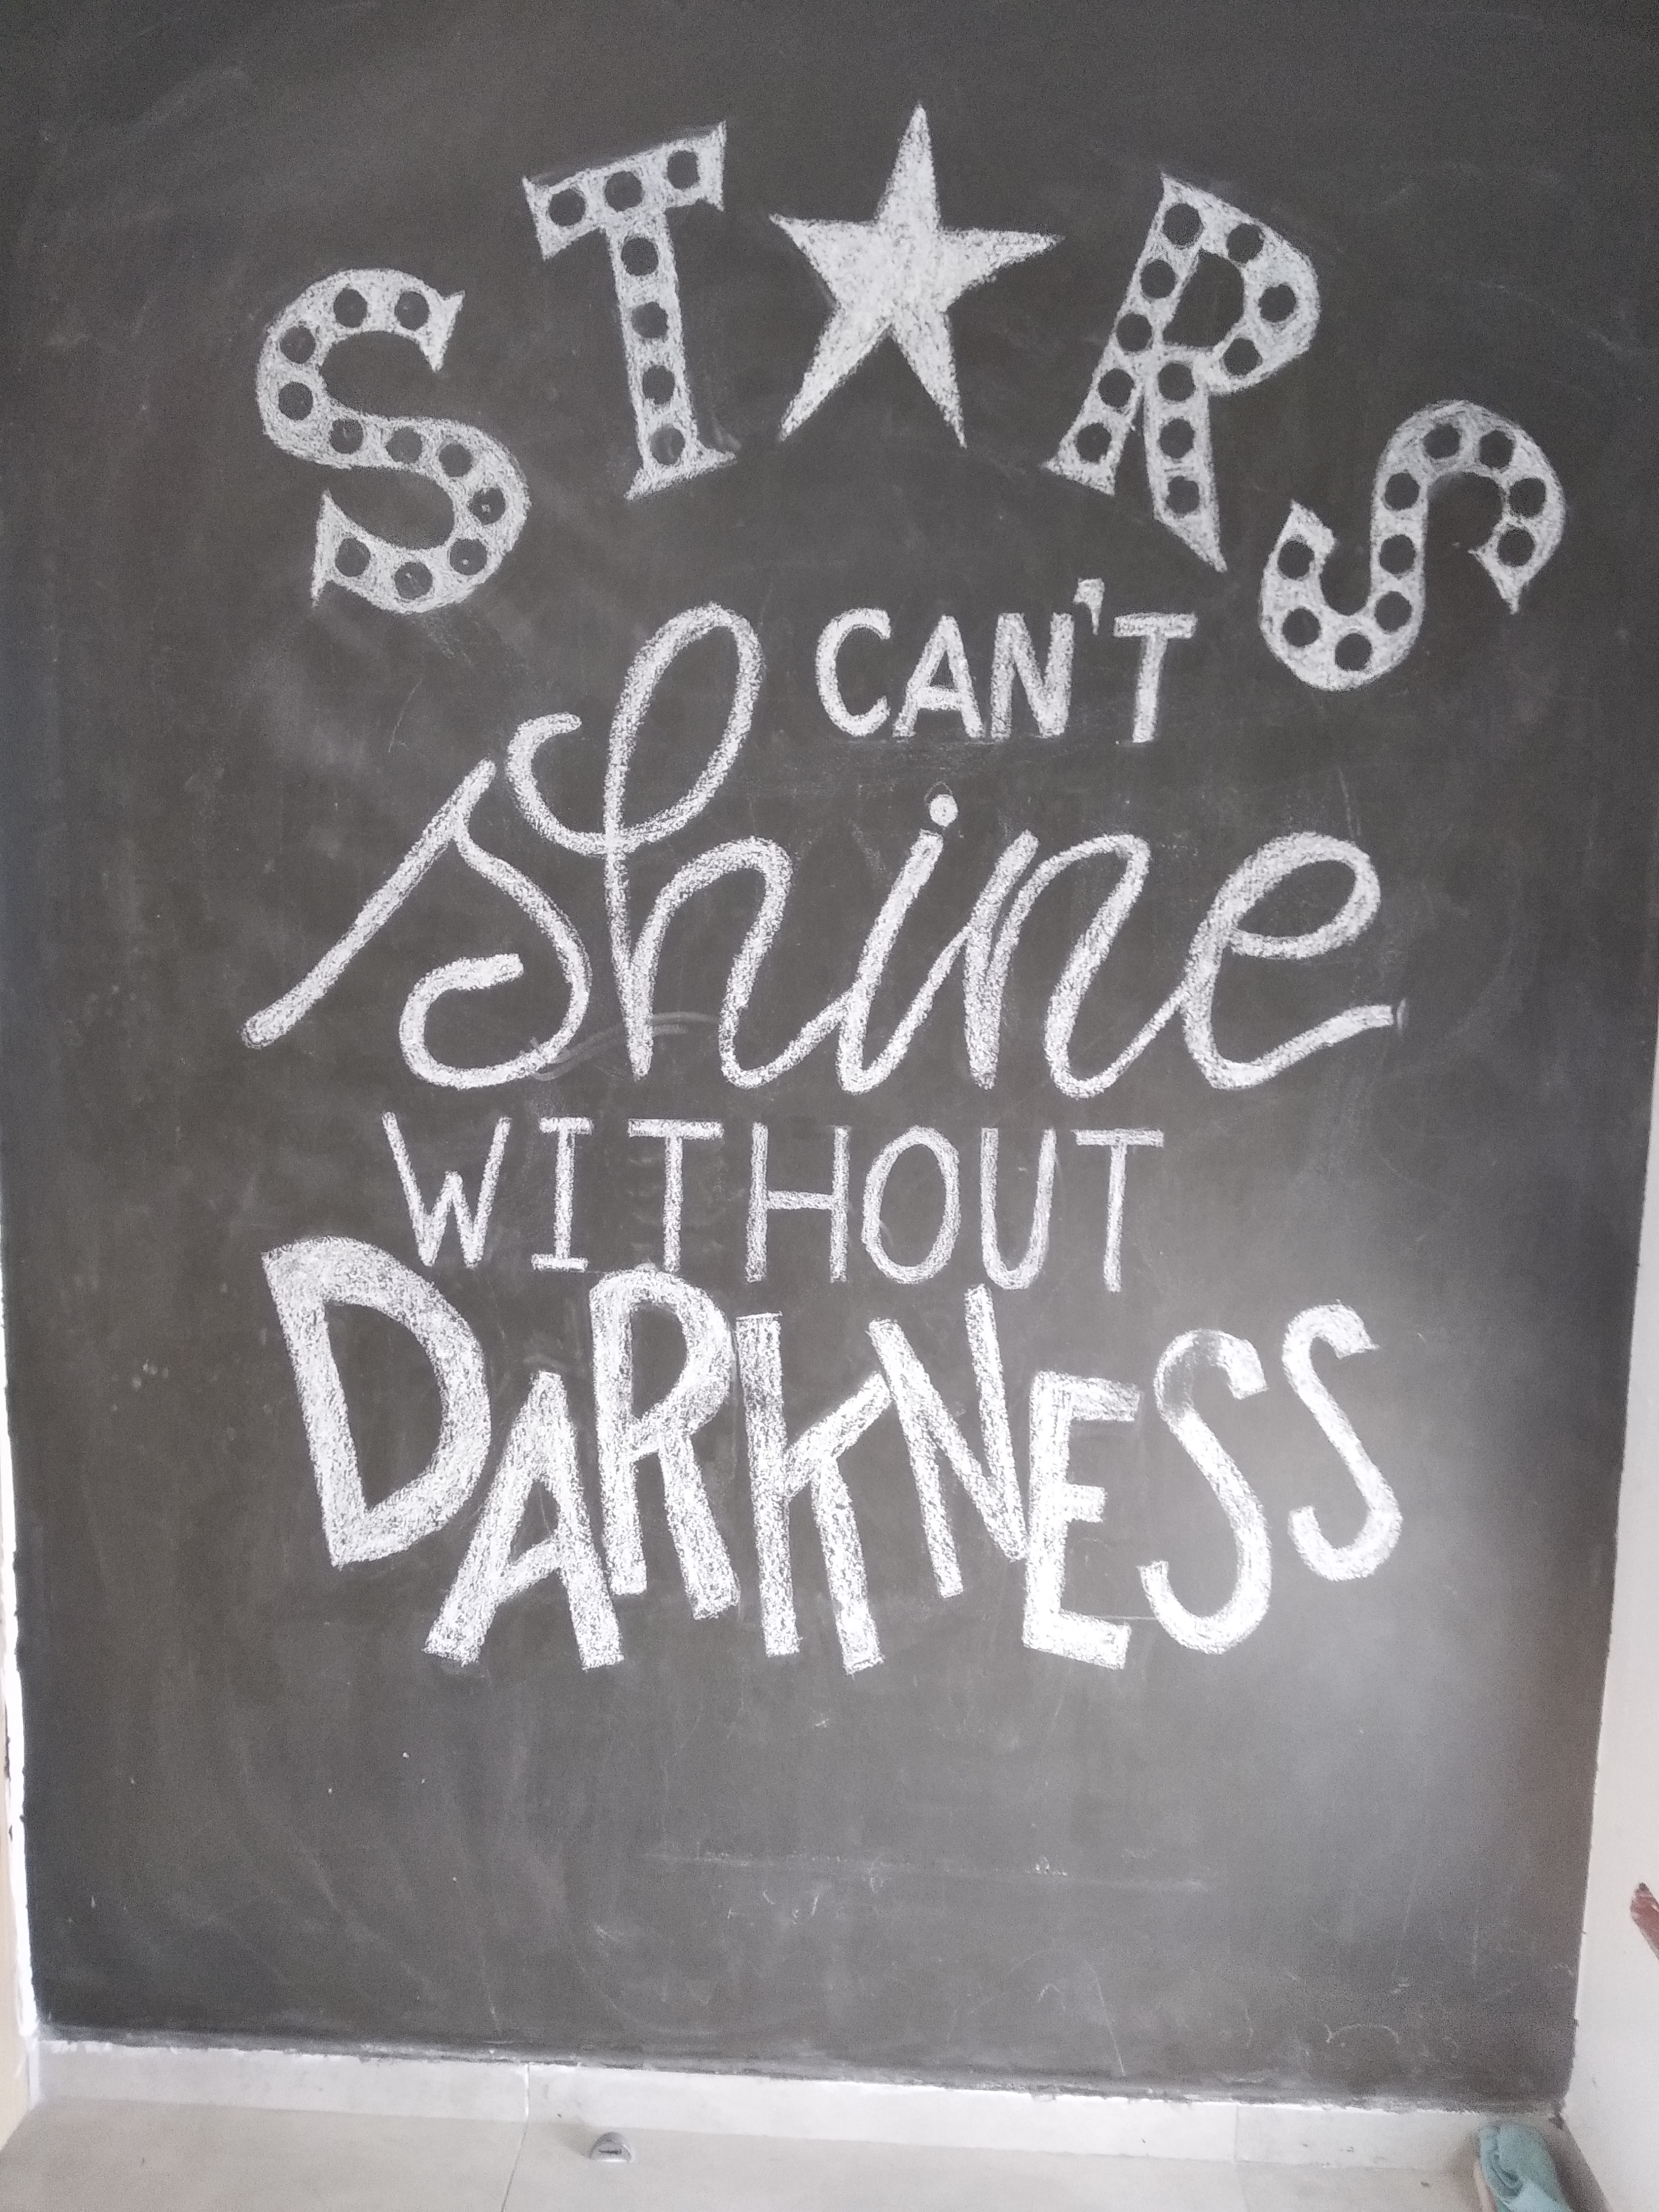 ST★RS
CAN'T
shine
WITHOUT
DARKNESS